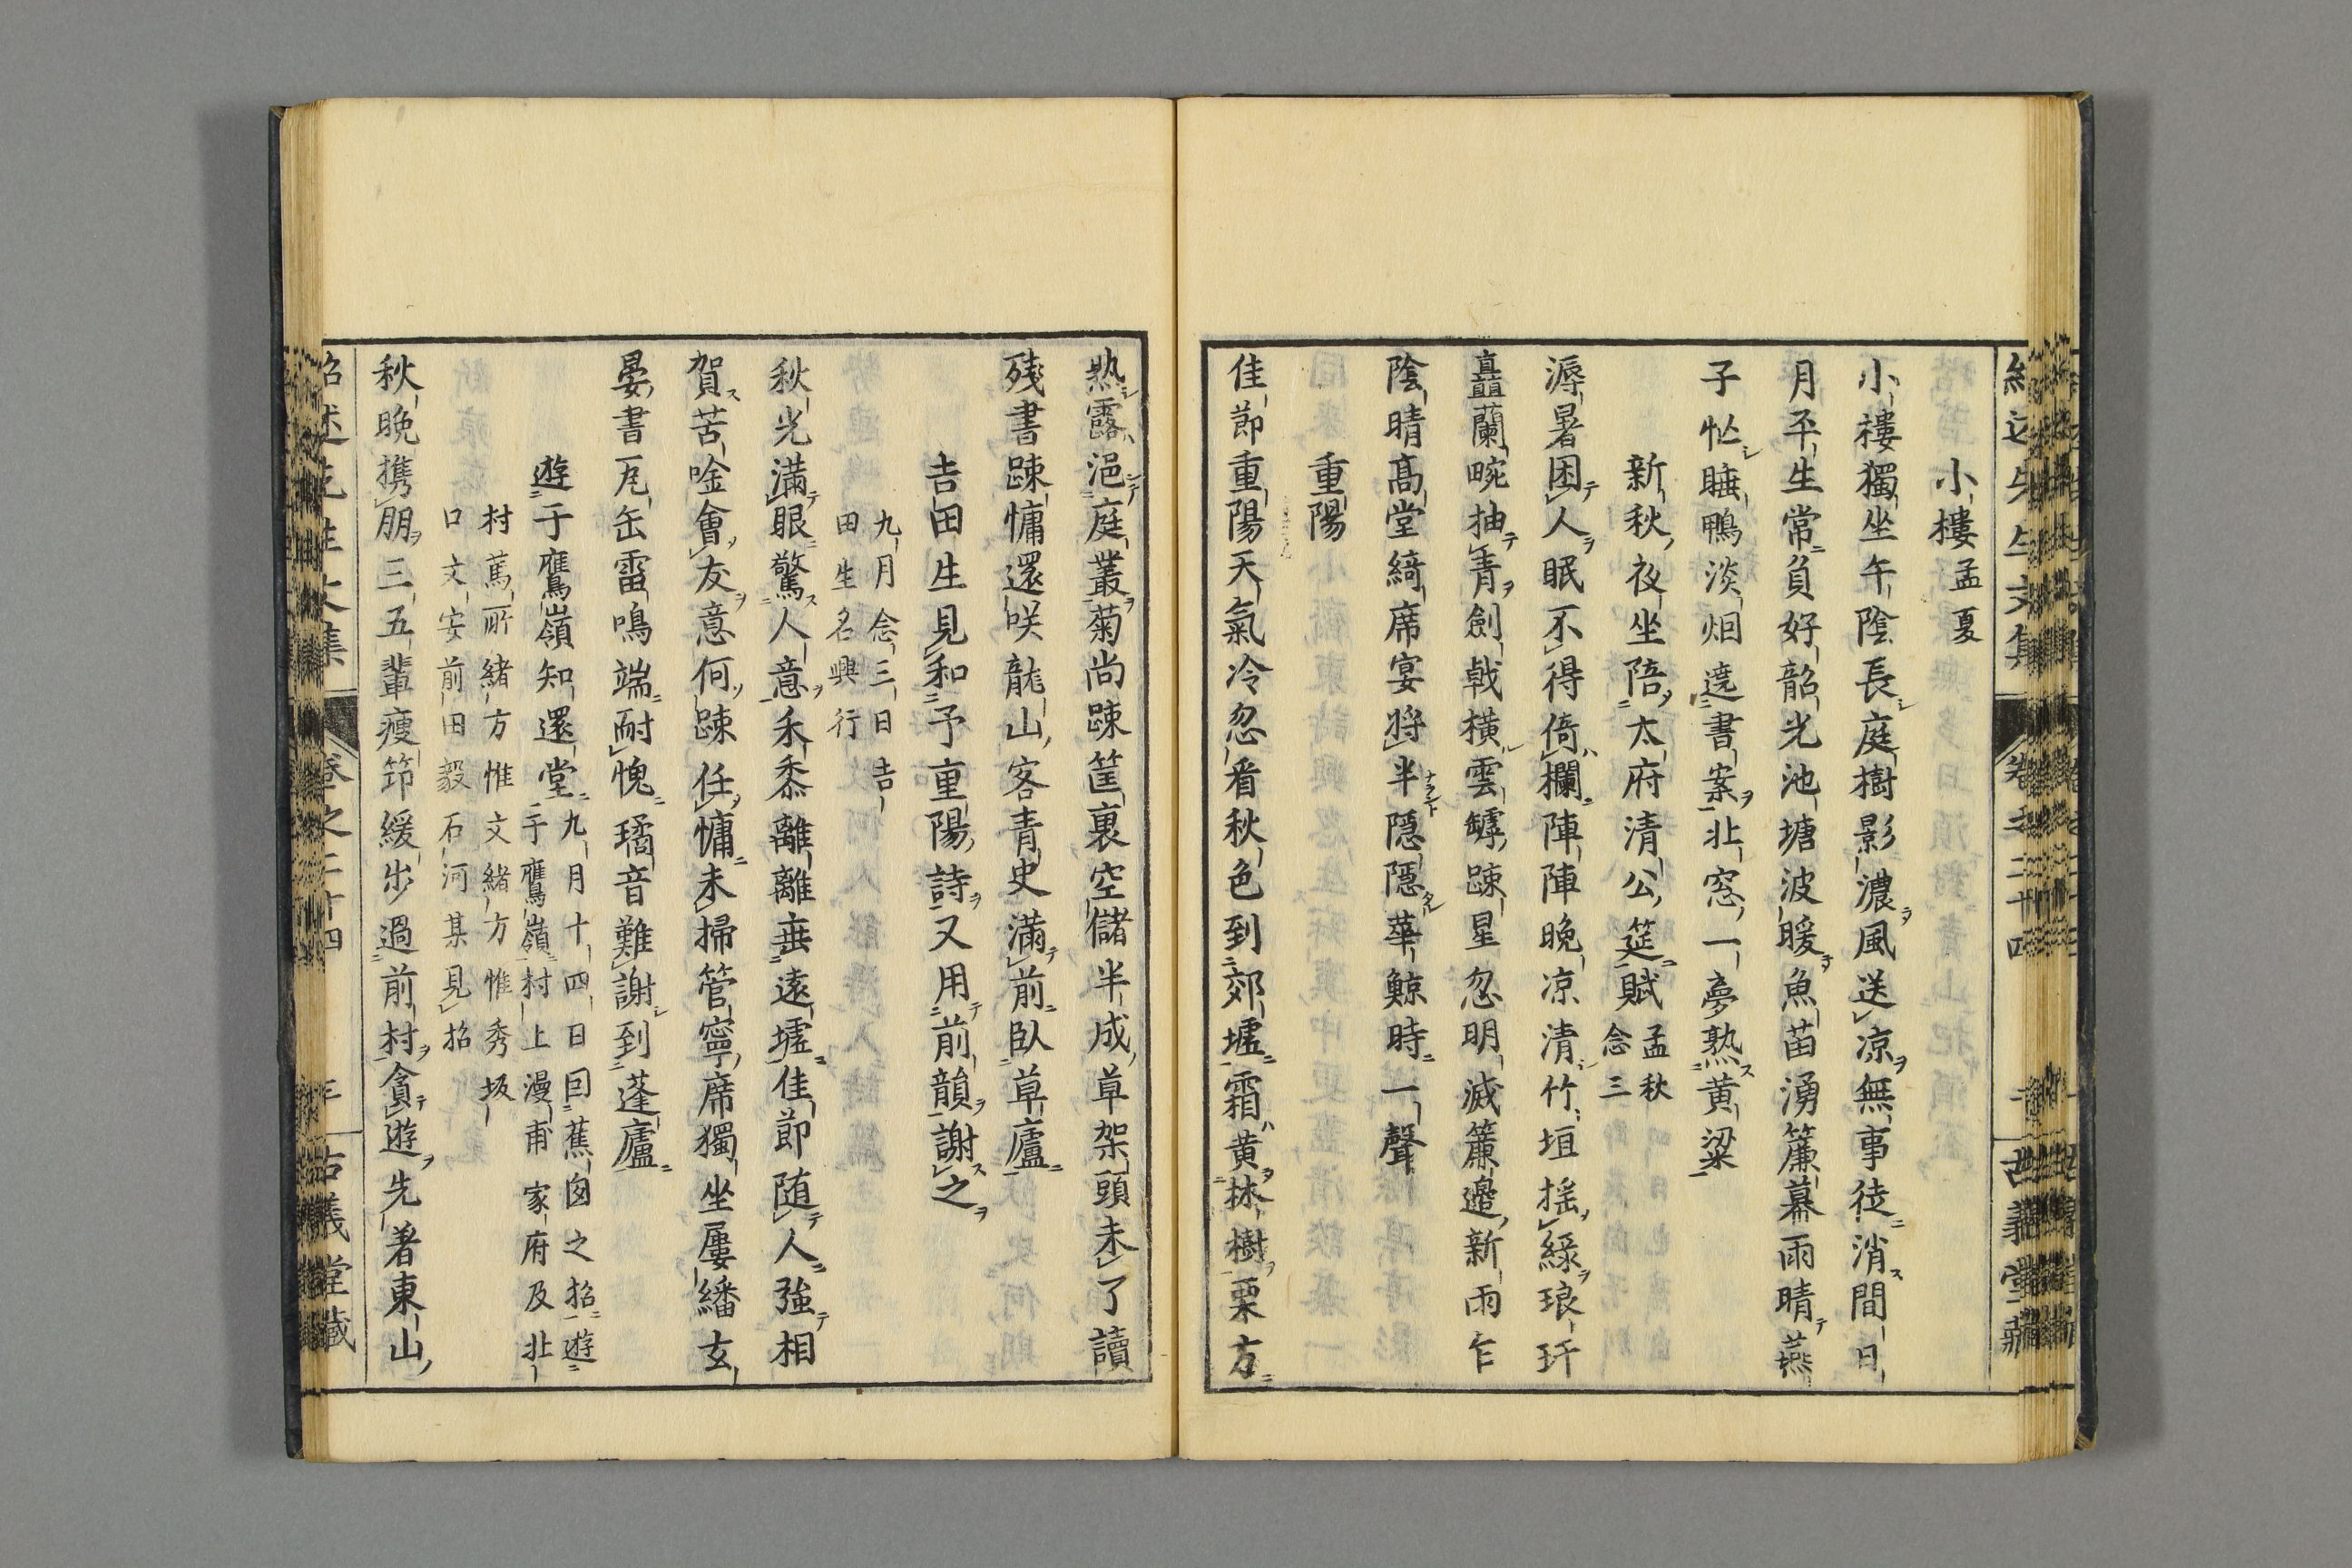 小樓孟夏
小樓獨坐午陰長庭樹影濃風送凉無事徒消間日
月平生常負好韶光池塘波暖魚苗湧簾幕雨晴燕
子忙睡鴨淡烟遶書案北窓一夢熟黄粱
新秋夜坐陪太府清公筵賦孟秋
念三
溽暑困人眠不得倚欄陣陣晩凉清竹垣揺綠琅玕
矗蘭畹抽青劍戟橫雲罅踈星忽明滅簾邊新雨乍
陰晴髙堂綺席宴將半隠隠華鯨時一聲
重陽
佳節重陽天氣冷忽看秋色到郊墟霜黄林樹栗方
熟露浥庭叢菊尚踈筐裏空儲半成草架頭未了讀
殘書踈慵還咲龍山客青史滿前臥草廬
吉田生見和予重陽詩又用前韻謝之
九月念三日吉
田生名興行
秋光滿眼驚人意禾黍離離垂遠墟佳節隨人強相
賀苦唫會友意何踈任慵未掃管寧席獨坐屢繙玄
晏書瓦缶雷鳴端耐愧璚音難謝到蓬廬
遊于鷹嶺知還堂九月十四日囙蕉囱之招遊
于鷹嶺村上漫甫家府及北
村篤所緒方惟文緒方惟秀坂
口文安前田毅石河某見招
秋晩携朋三五輩瘦筇緩步過前村貪遊先著東山
紹述先生文集
卷之二十四
古義堂藏